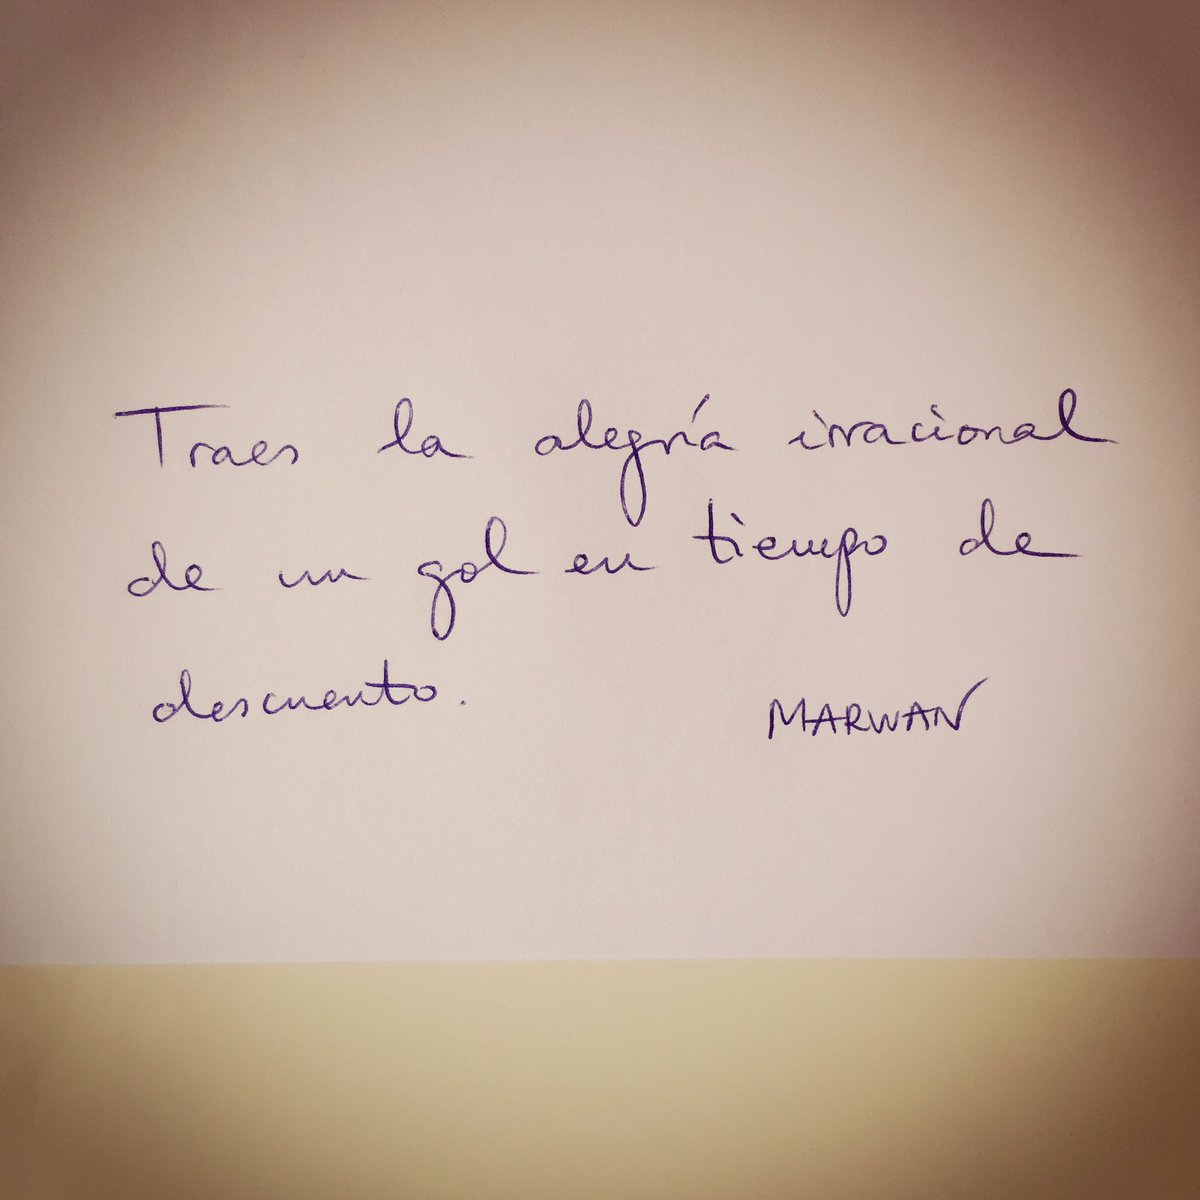 Traes la alegría irracional
de un gol en tiempo de
descuento.
MARWAN